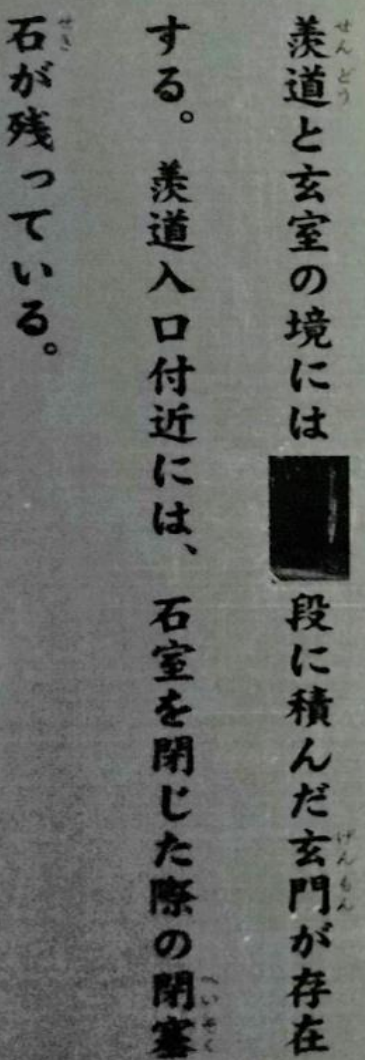 羨道と玄室の境には段に積んだ玄門が存在
する。羨道入口付近には、石室を閉じた際の閉塞
石が残っている。